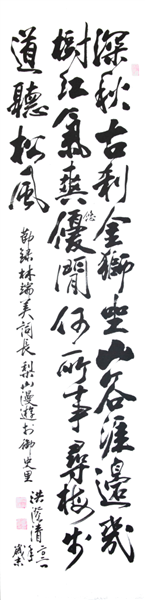 深秋古剎金獅坐山谷涯邊幾
樹紅氣爽優閒何所事尋梅步
悠
道聽松風
節錄林瑞美詞長梨山漫遊於御史里
洪澄清
歲末